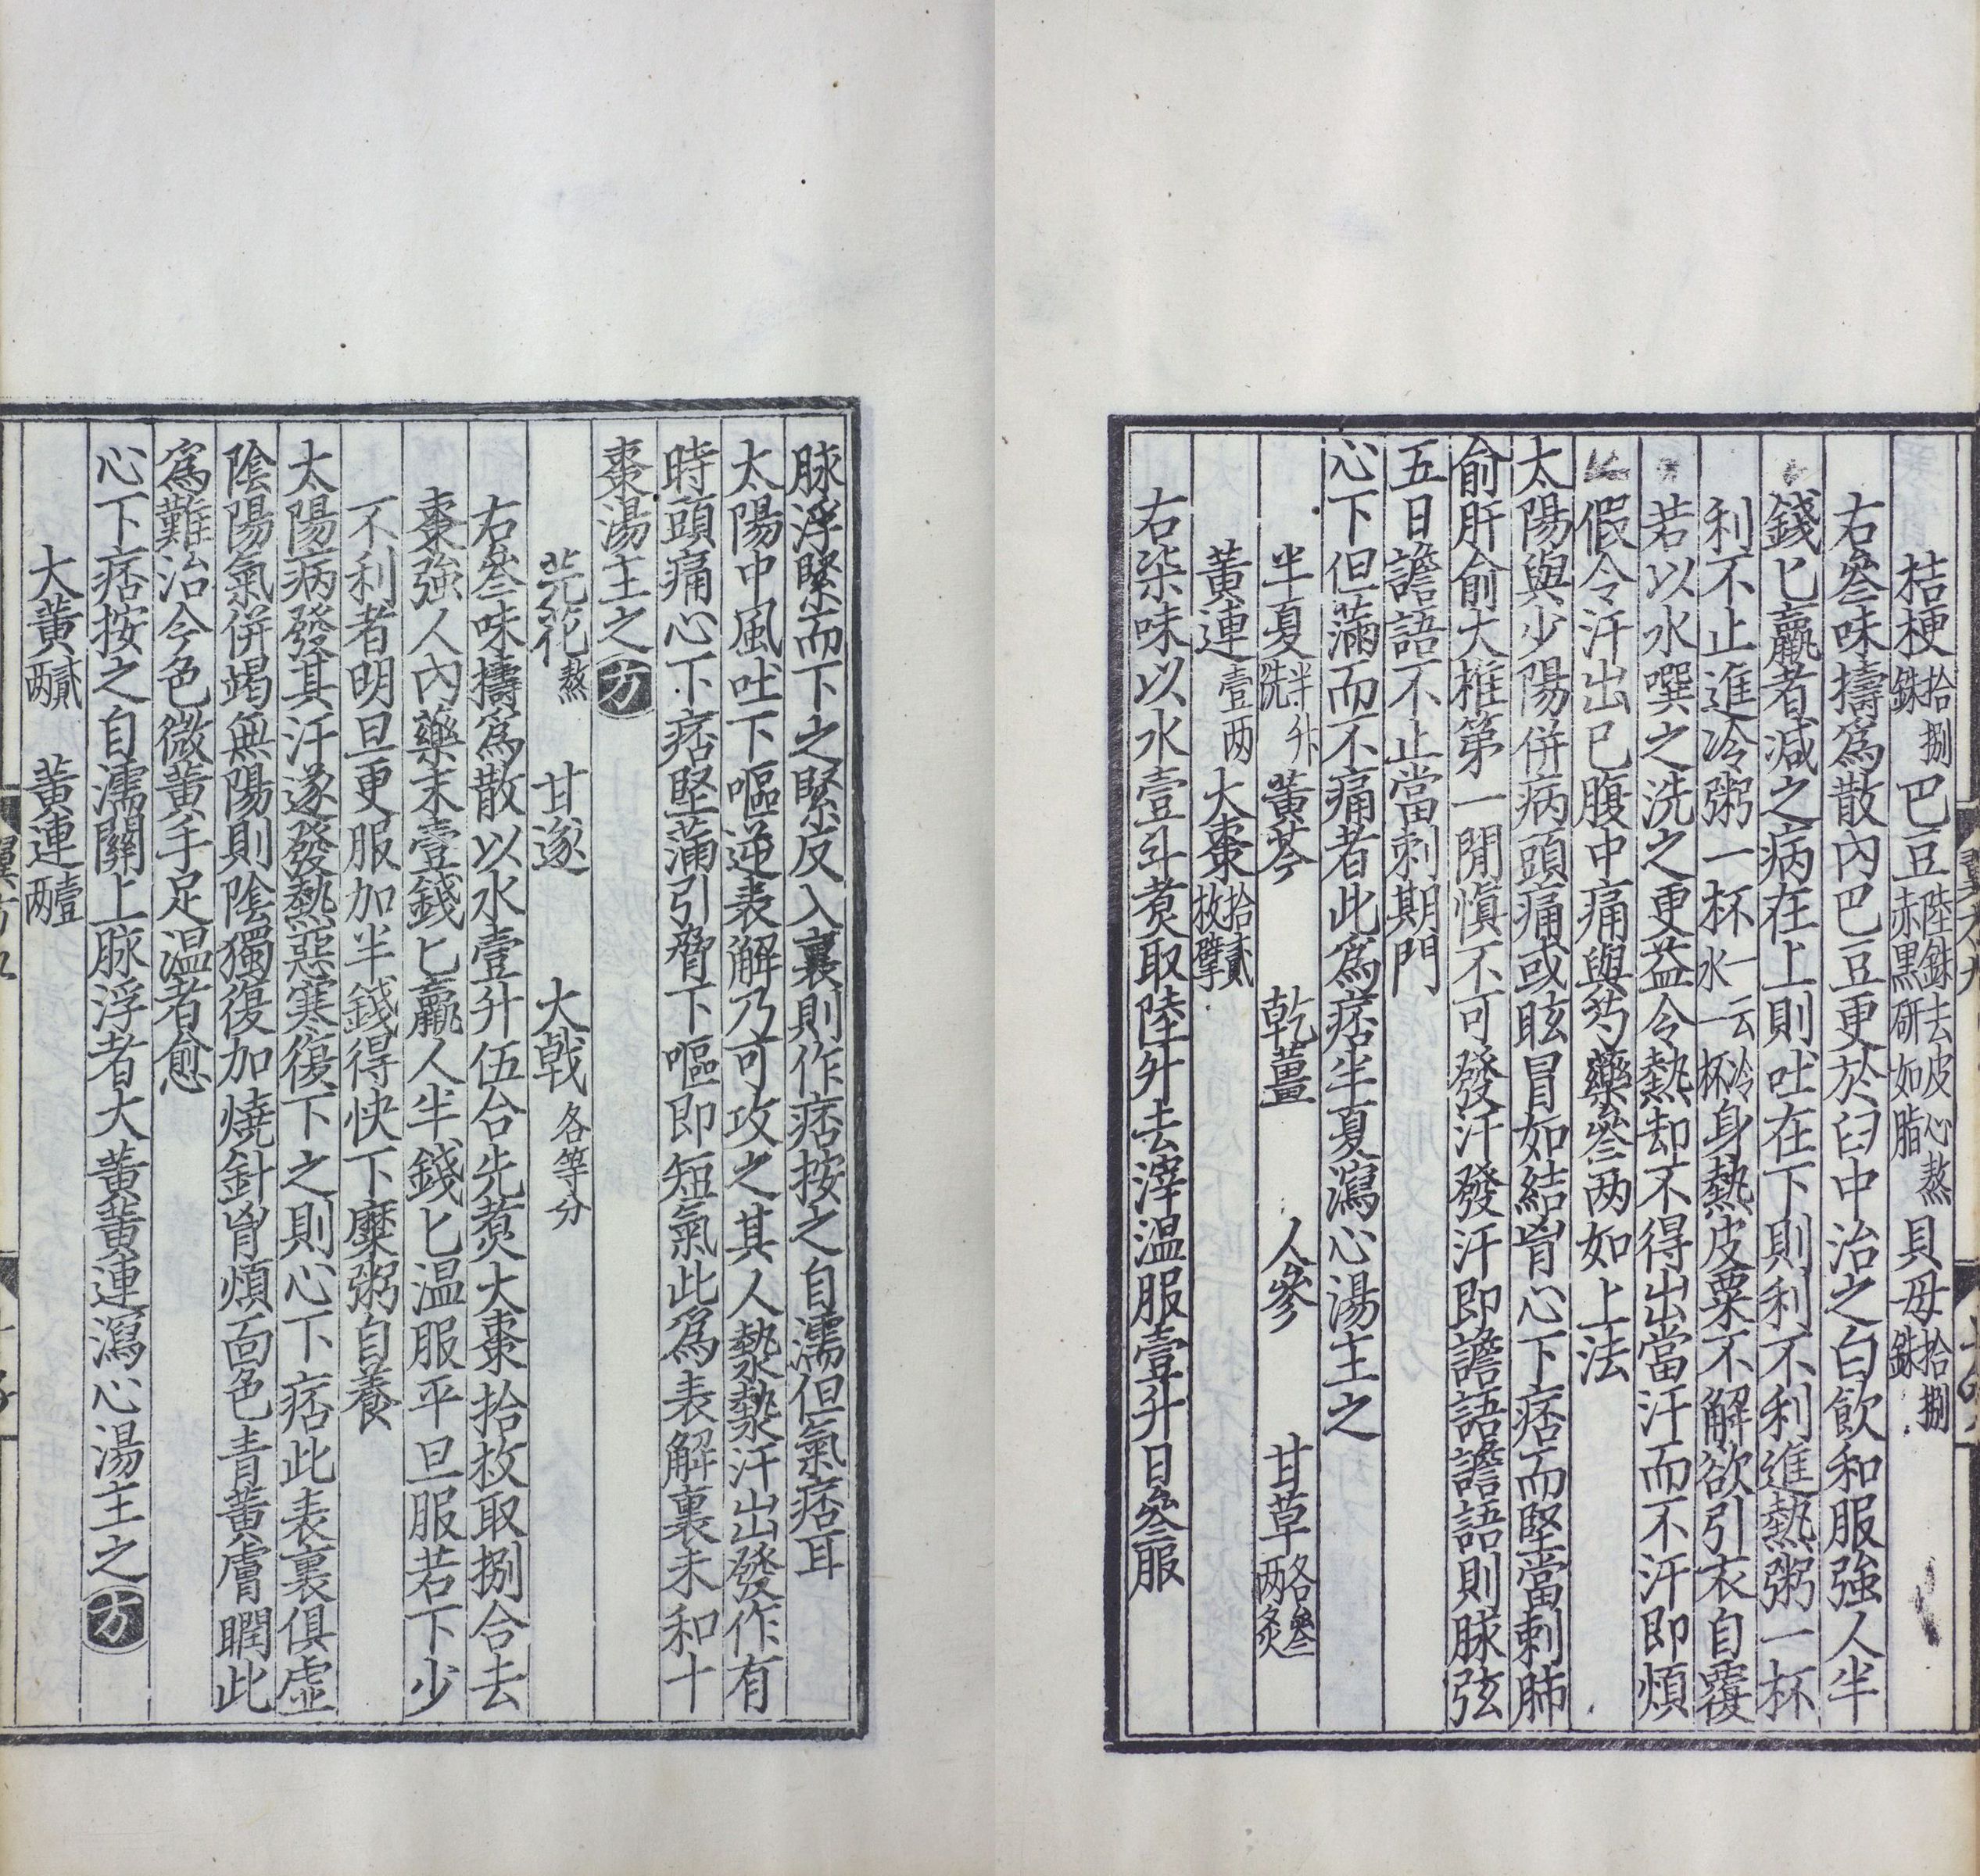 桔梗拾捌銖　巴豆陸銖去皮心熬赤黑研如脂　貝母拾捌銖
右叁味擣爲散內巴豆更於臼中治之白飲和服強人半
錢匕羸者減之病在上則吐在下則利不利進熱粥一杯
利不止進冷粥一杯一云冷水一杯身熱皮粟不解欲引衣自覆
若以水噀之洗之更益令熱却不得出當汗而不汗即煩
假令汗出已腹中痛與芍藥叁两如上法
太陽與少陽併病頭痛或眩冒如結胷心下痞而堅當刺肺
俞肝俞大椎第一閒慎不可發汗發汗即譫語譫語則脉弦
五日譫語不止當刺期門
心下但滿而不痛者此爲痞半夏瀉心湯主之
半夏半升洗　黃芩　乾薑　人參　甘草各叁两炙
黃連壹两　大棗拾貳枚擘
右柒味以水壹斗煑取陸升去滓温服壹升日叁服
脉浮緊而下之緊反入裏則作痞按之自濡但氣痞耳
太陽中風吐下嘔逆表解乃可攻之其人漐漐汗出發作有
時頭痛心下痞堅滿引脅下嘔即短氣此爲表解裏未和十
棗湯主之方
芫花熬　甘遂　大戟各等分
右叁味擣爲散以水壹升伍合先煑大棗拾枚取捌合去
棗強人內藥末壹錢匕羸人半錢匕温服平旦服若下少
不利者明旦更服加半錢得快下糜粥自養
太陽病發其汗遂發熱惡寒復下之則心下痞此表裏俱虛
陰陽氣併竭無陽則陰獨復加燒針胷煩面色青黃膚瞤此
爲難治今色微黃手足温者愈
心下痞按之自濡關上脉浮者大黃黃連瀉心湯主之方
大黃貳两　黃連壹两